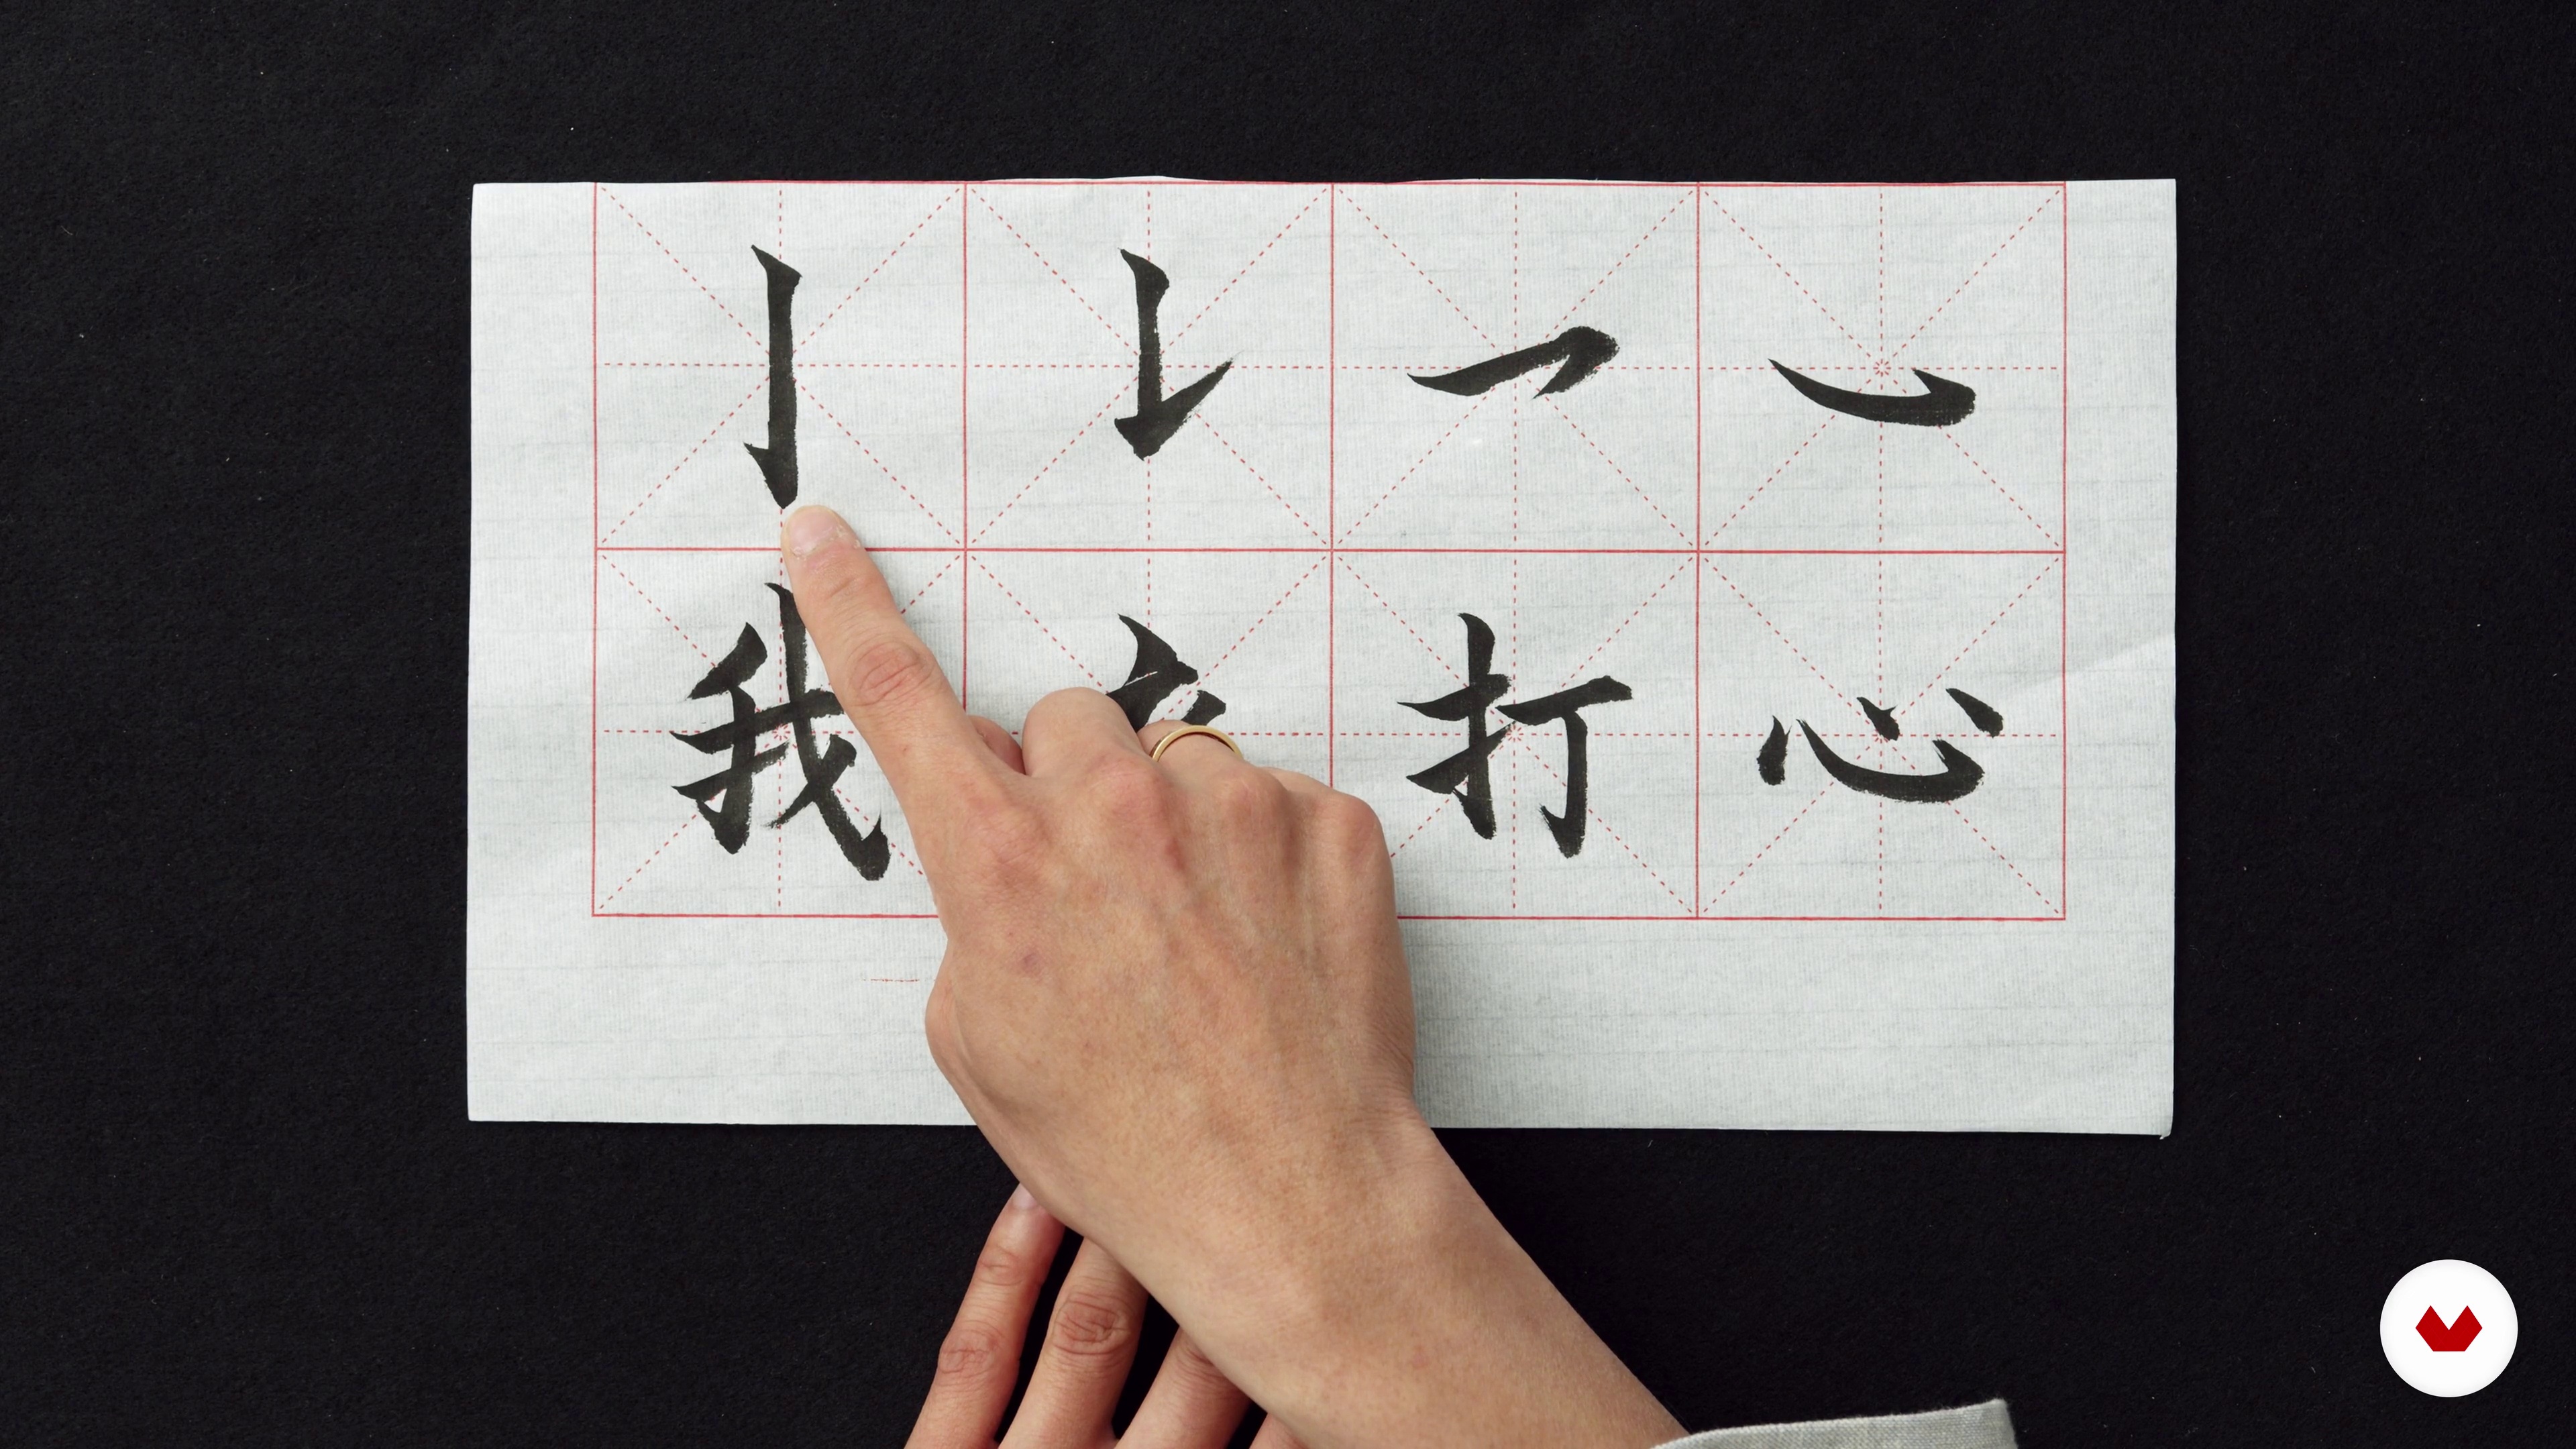 亅 𠄌 乛 ㇃
我 打 心